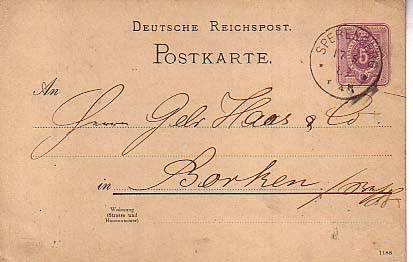 DEUTSCHE REICHSPOST.
POSTKARTE.
5
An
Herrn Gebr Haas & Co.
in Borken
Wohnung
(Strasse und
Hausnummer)
1188